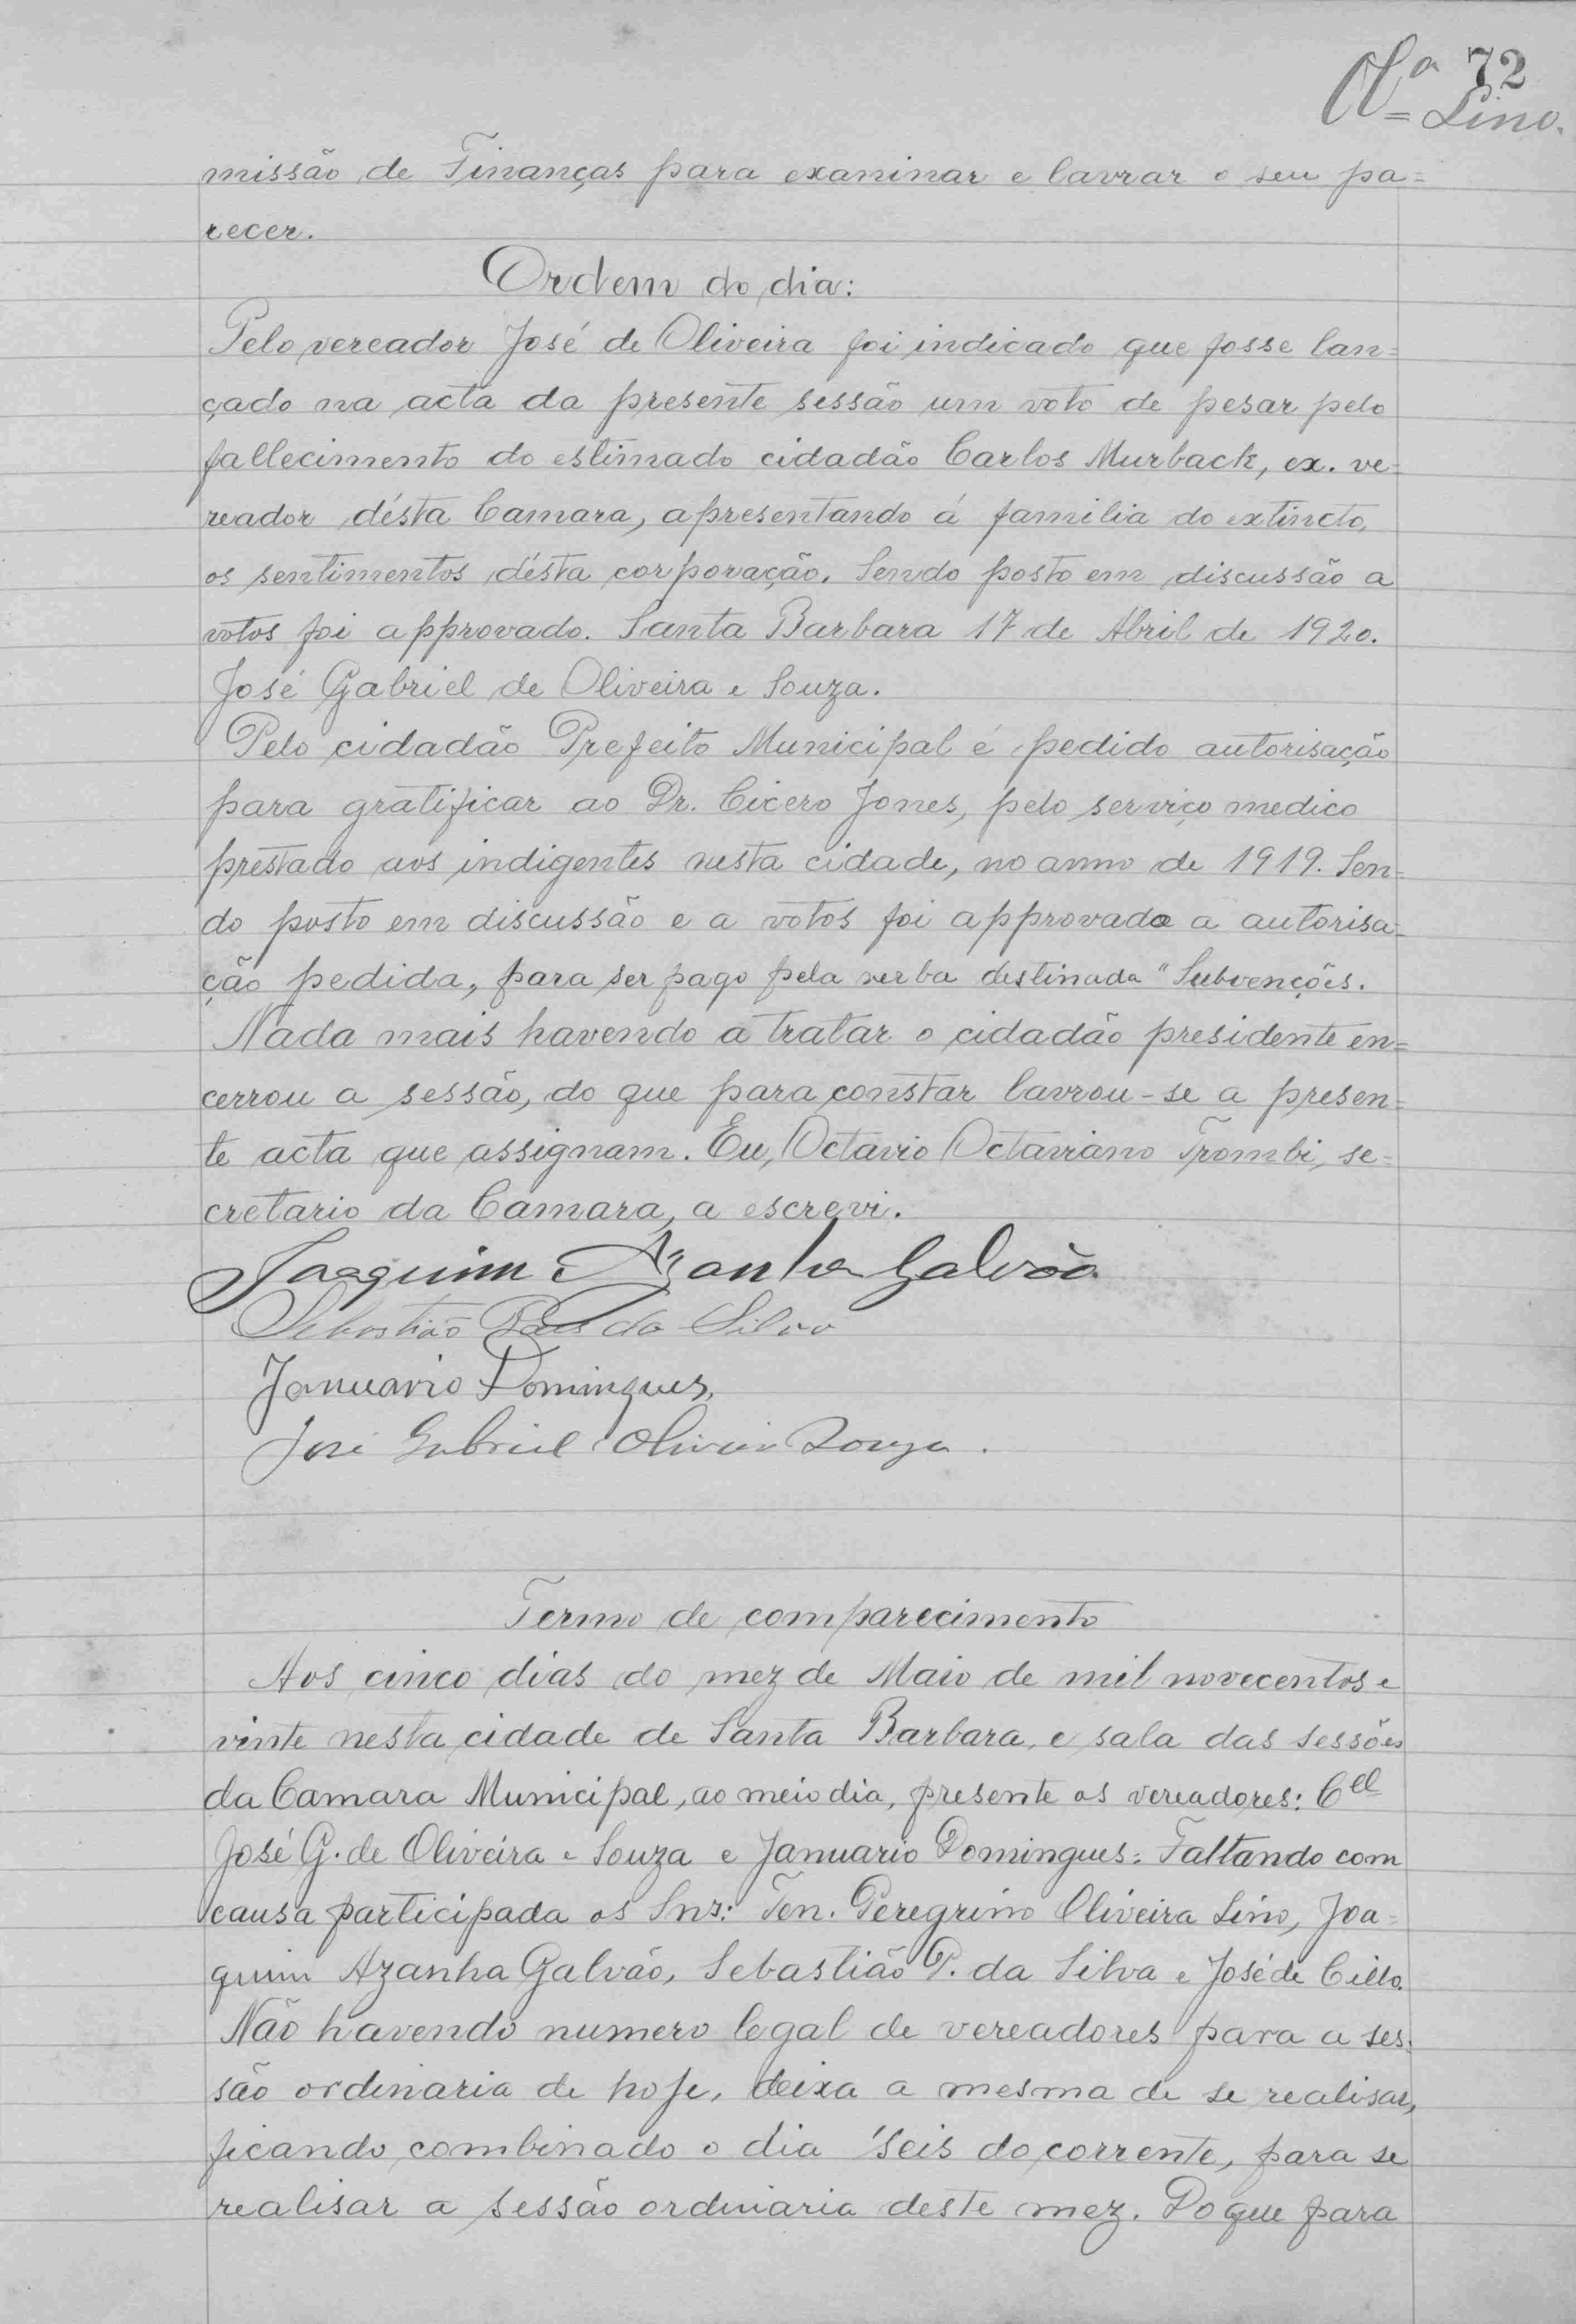 72
Ol.ª Lino.
missão de Finanças para examinar e lavrar o seu pa=
recer.
Ordem do dia:
Pelo vereador José de Oliveira foi indicado que fosse lan=
çado na acta da presente sessão um voto de pesar pelo
fallecimento do estimado cidadão Carlos Murback, ex. ve-
reador désta Camara, apresentando á familia do extincto,
os sentimentos désta corporação. Sendo posto em discussão a
votos foi approvado. Santa Barbara 17 de Abril de 1920.
José Gabriel de Oliveira e Souza.
Pelo cidadão Prefeito Municipal é pedido autorisação
para gratificar ao Dr. Cicero Jones, pelo serviço medico
prestado aos indigentes nesta cidade, no anno de 1919. Sen=
do posto em discussão e a votos foi approvada a autorisa-
ção pedida, para ser pago pela verba destinada "Subvenções.
Nada mais havendo a tratar o cidadão presidente en=
cerrou a sessão, do que para constar lavrou-se a presen=
te acta que assignam. Eu, Octavio Octaviano Trombi, se=
cretario da Camara, a escrevi.
Joaquim Azanha Galvão
Sebastião Paes da Silva
Januario Domingues.
José Gabriel Oliveira Souza.
Termo de comparecimento
Aos cinco dias do mez de Maio de mil novecentos e
vinte nesta cidade de Santa Barbara, e sala das sessões
da Camara Municipal, ao meio dia, presente os vereadores: Cel
José G. de Oliveira e Souza e Januario Domingues. Faltando com
causa participada os Snrs: Ten. Peregrino Oliveira Lino, Joa=
quim Azanha Galvão, Sebastião P. da Silva e José de Cillo.
Não havendo numero legal de vereadores para a ses.
são ordinaria de hoje, deixa a mesma de se realisar,
ficando combinado o dia seis do corrente, para se
realisar a sessão ordinaria deste mez. Do que para